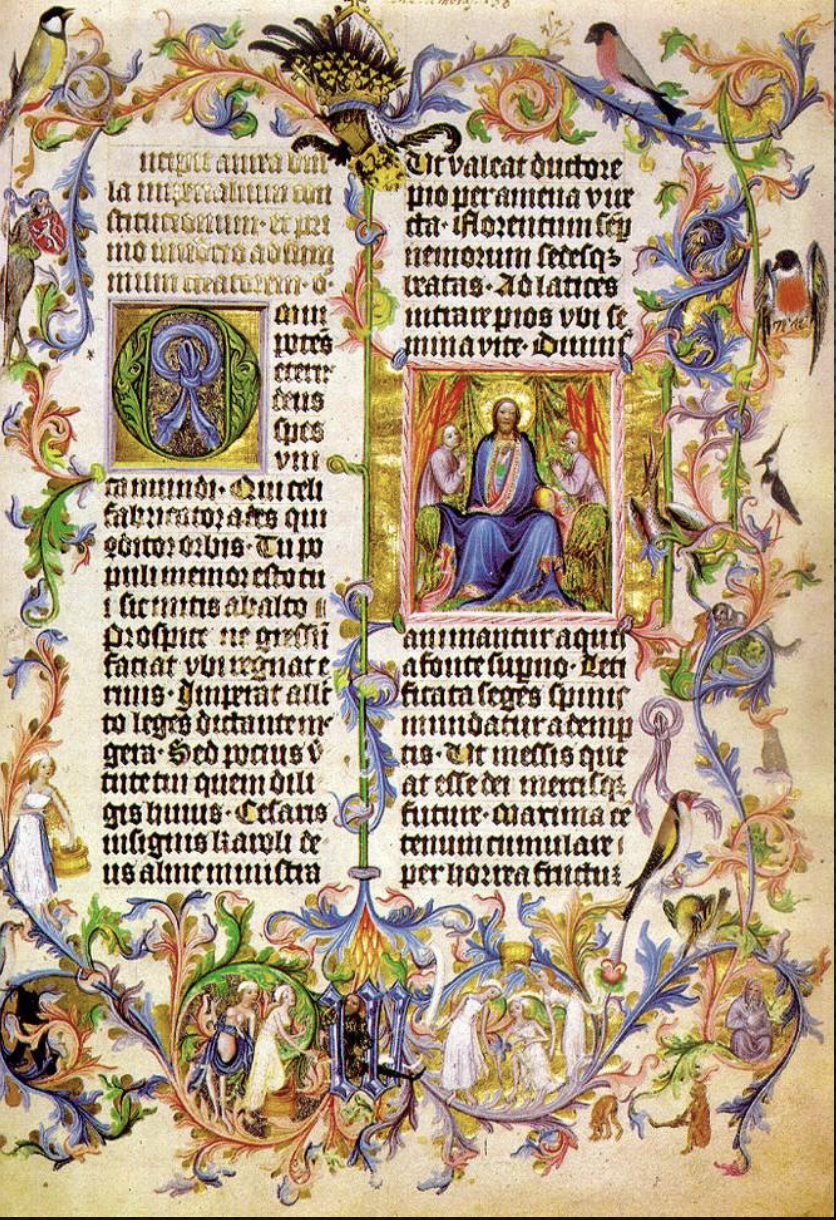 incipit aurea bul
la imperialium con
stitucionum · et pri
mo
mum creatorem · O
mni
potēs
eterne
deus
spes
uni
ca mundi · Qui celi
fabricator ades qui
ꝯditor orbis · Tu po
puli memor esto tu
i sic mitis ab alto
Prospice ne gressū
faciat vbi regnat e
rinis · Imperat alle
to leges dictante me
gera · Sed pocius v̄
tute tui quem dili
gis huius · Cesaris
insignis karoli de
us alme ministra
Ut valeat ductore
pio per amena vire
cta · Florentum sep̄
nemorum sedesqꝫ
beatas · Ad latices
intrare pios vbi se
mina vite · Diuinis
animantur aquis
a fonte suꝑno · Leti
ficata seges spinis
mundatur ademp
tis · Ut messis que
at esse dei mercisqꝫ
future · Maxima ce
tenum cumulare
per horrea fructus